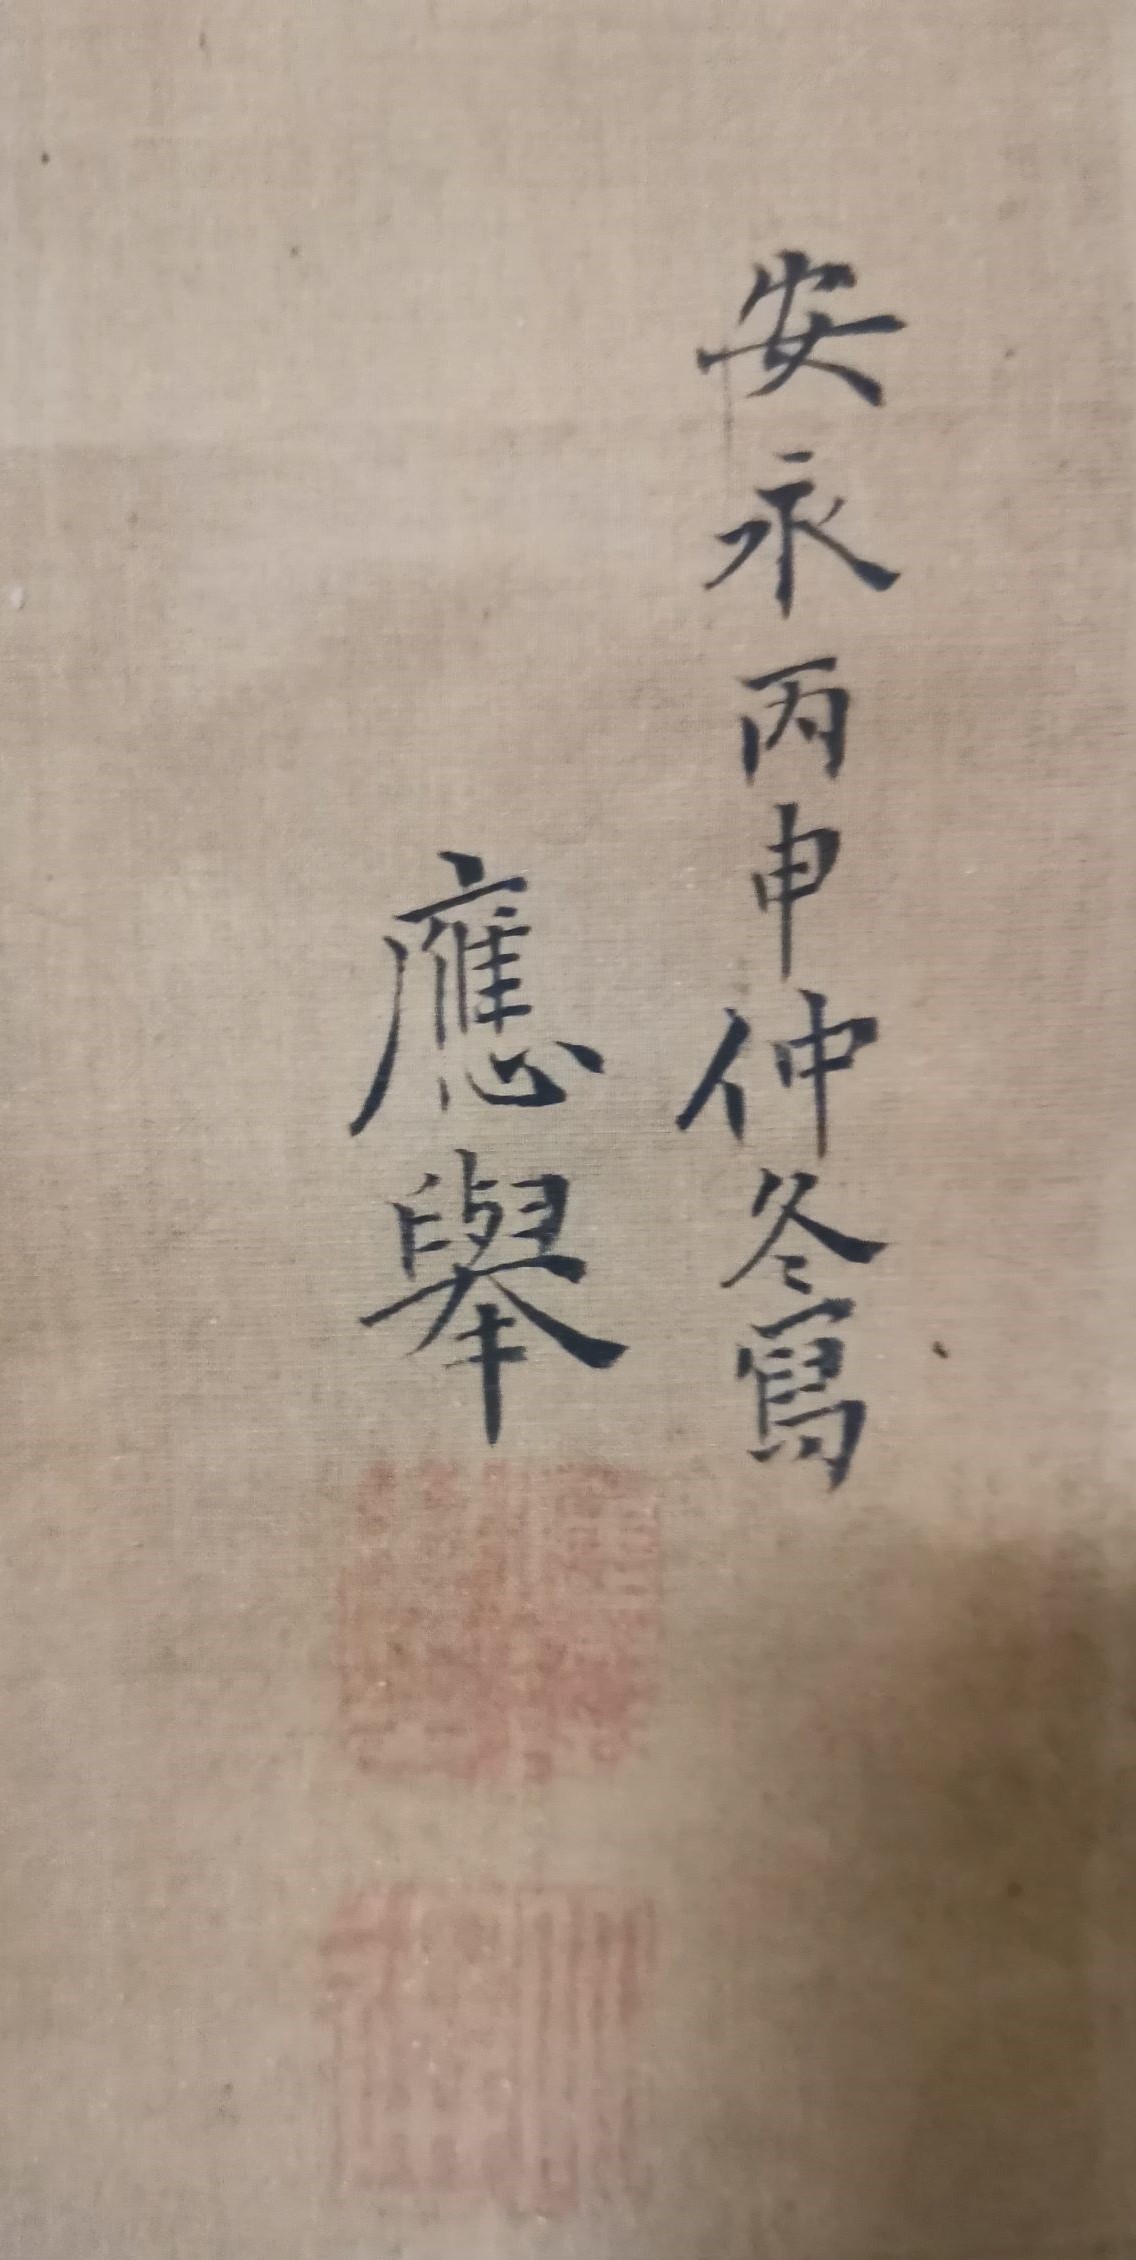 安永丙申仲冬寫
應舉